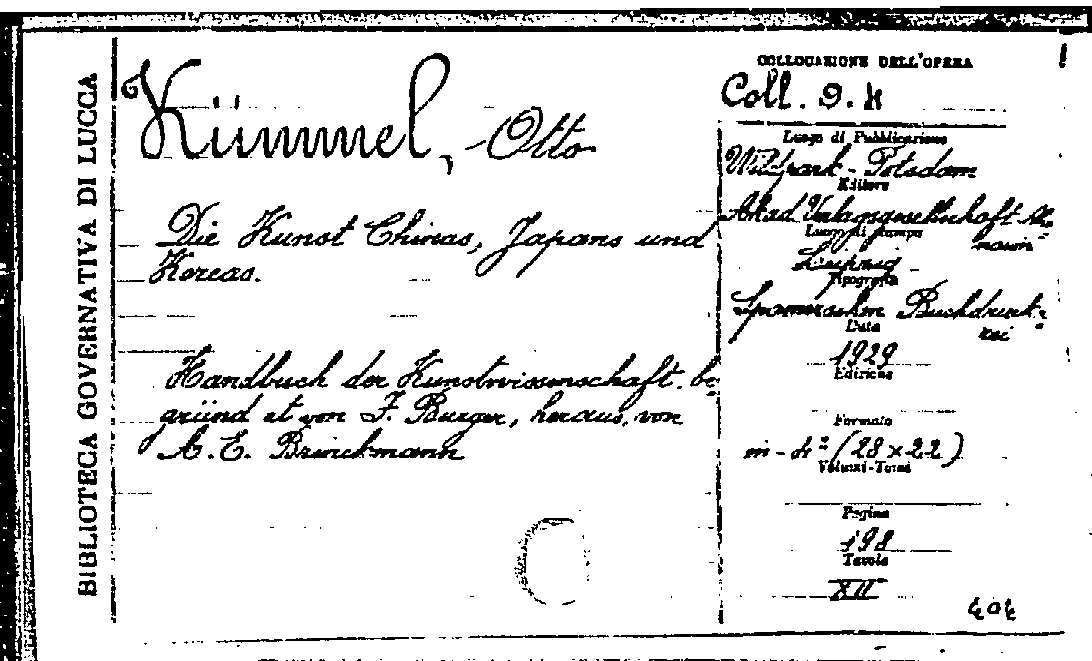 BIBLIOTECA GOVERNATIVA DI LUCCA
Kümmel, Otto
Die Kunst Chinas, Japans und
Koreas.
Handbuch der Kunstwissenschaft. be
gründ et von F. Burger, heraus. von
A. E. Brinckmann
COLLOCAZIONE DELL'OPERA
Coll. 9.
Luogo di Pubblicazione
Wildpark - Potsdam
Editore
Akad Verlagsgesellschaft
Luogo di stampa
Leipzig
Tipografia
Spamerschen Buchdruck-
rei
Data
1929
Edizione
Formato
in-4º (28 x 22)
Volumi-Tomi
Pagine
198
Tavole
XII
404